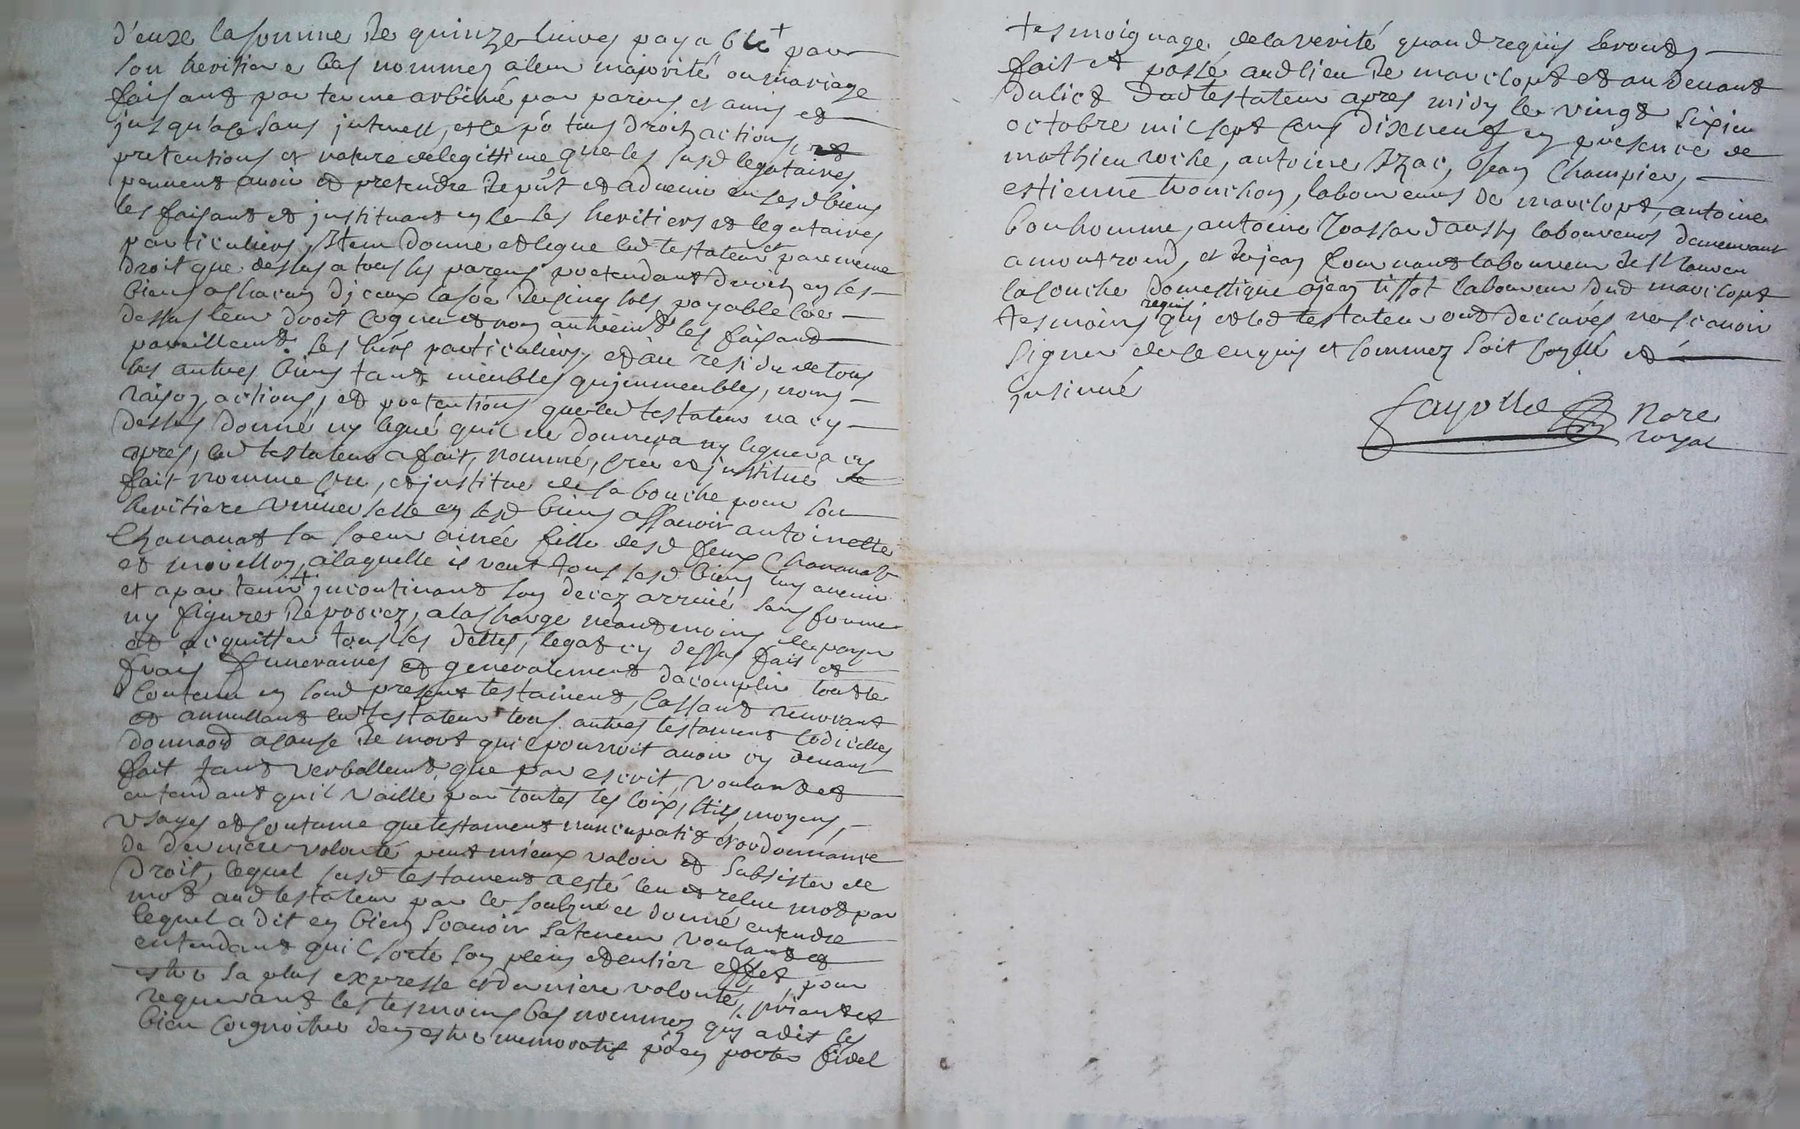 d'euxe la somme de quinze livres payable + par
son heritiere bas nommez a leur majorité ou mariage
faisant par terme arbitré par parens et amis et
jusqu'alors sans jnterest, et ce po tous droitz actions
pretentions et nature de legittime que les susd legataires
peuvent avoir et pretendre de put et advenir en sesd biens
les faisant et jnstituant en ce ses heritiers et legataires
particuliers, Jtem donne et legue led testateur et par meme
droit que dessus a tous ses parens pretendant droitz en ses
biens a chacun d'jceux la soe de cinq sols payable co e
dessus leur droit cogneu et non autrement les faisant
pareillement ses hers particuliers, et au residu de tous
ses autres biens tant meubles qu'jmmeubles, noms
raison, actions, et pretentions que led testateur na cy
dessus donné ny legué qu'il ne donnera ny leguera cy
apres, led testateur a fait, nommé, créé et jnstitué
fait nomme cree, et jnstitue de sa bouche pour son
heritiere universelle en sesd biens assavoir antoinette
Chavanat sa soeur ainée fille desd feux Chavanat
et , a laquelle il veut tous sesd biens luy avenir
et apartenir + jncontinant son decez arrivé sans forme
ny figure de procez, a la charge neantmoins de payer
et acquitter tous ses dettes, legat cy dessus fait et
frais funeraires et generalement d'acomplir tout le
contenu en sond present testament, Cassant revocant
et annullant led testateur tous autres testament codicilles
donnaôn a cause de mort qu'il pourroit avoir cy devant
fait tant verballement que par escrit, voulant et
entendant qu'il vaille par toutes les loix, stils, moyens,
usages et coutume que testament nuncupatif et ordonnance
de derniere volonté peut mieux valoir et subsister de
droit, lequel susd testament a esté leu et releu mot par
mot aud testateur par le soubzné et donné entendre
lequel a dit en bien scavoir la teneur voulant et
entendant qu'il sorte son plein et entier effet, pour
estre sa plus expresse et derniere volonté, priant et
requerant les tesmoins bas nommez qu'il a dit les
bien cognoitre d'en estre memoratifs po en porter fidel
tesmoignage de la verité quand requis seronts
fait et passé aud lieu de marclopt et au devant
du lict dud testateur apres midy le vingt sixieme
octobre mil sept cens dixneuf en presence de
mathieu roche, antoine Jzac, Jean Champier,
estienne tronchon, laboureurs de marclopt, antoine
bonhomme, antoine aussy laboureurs demeurant
a montrond, et de jean laboureur de
la fouche domestique a jean tissot laboureur dud marclopt
tesmoins requis quj et led testateur ont declarés ne scavoir
signer de ce enquis et sommez soit sçellé et
jnsinué
fayolle Nore
royal